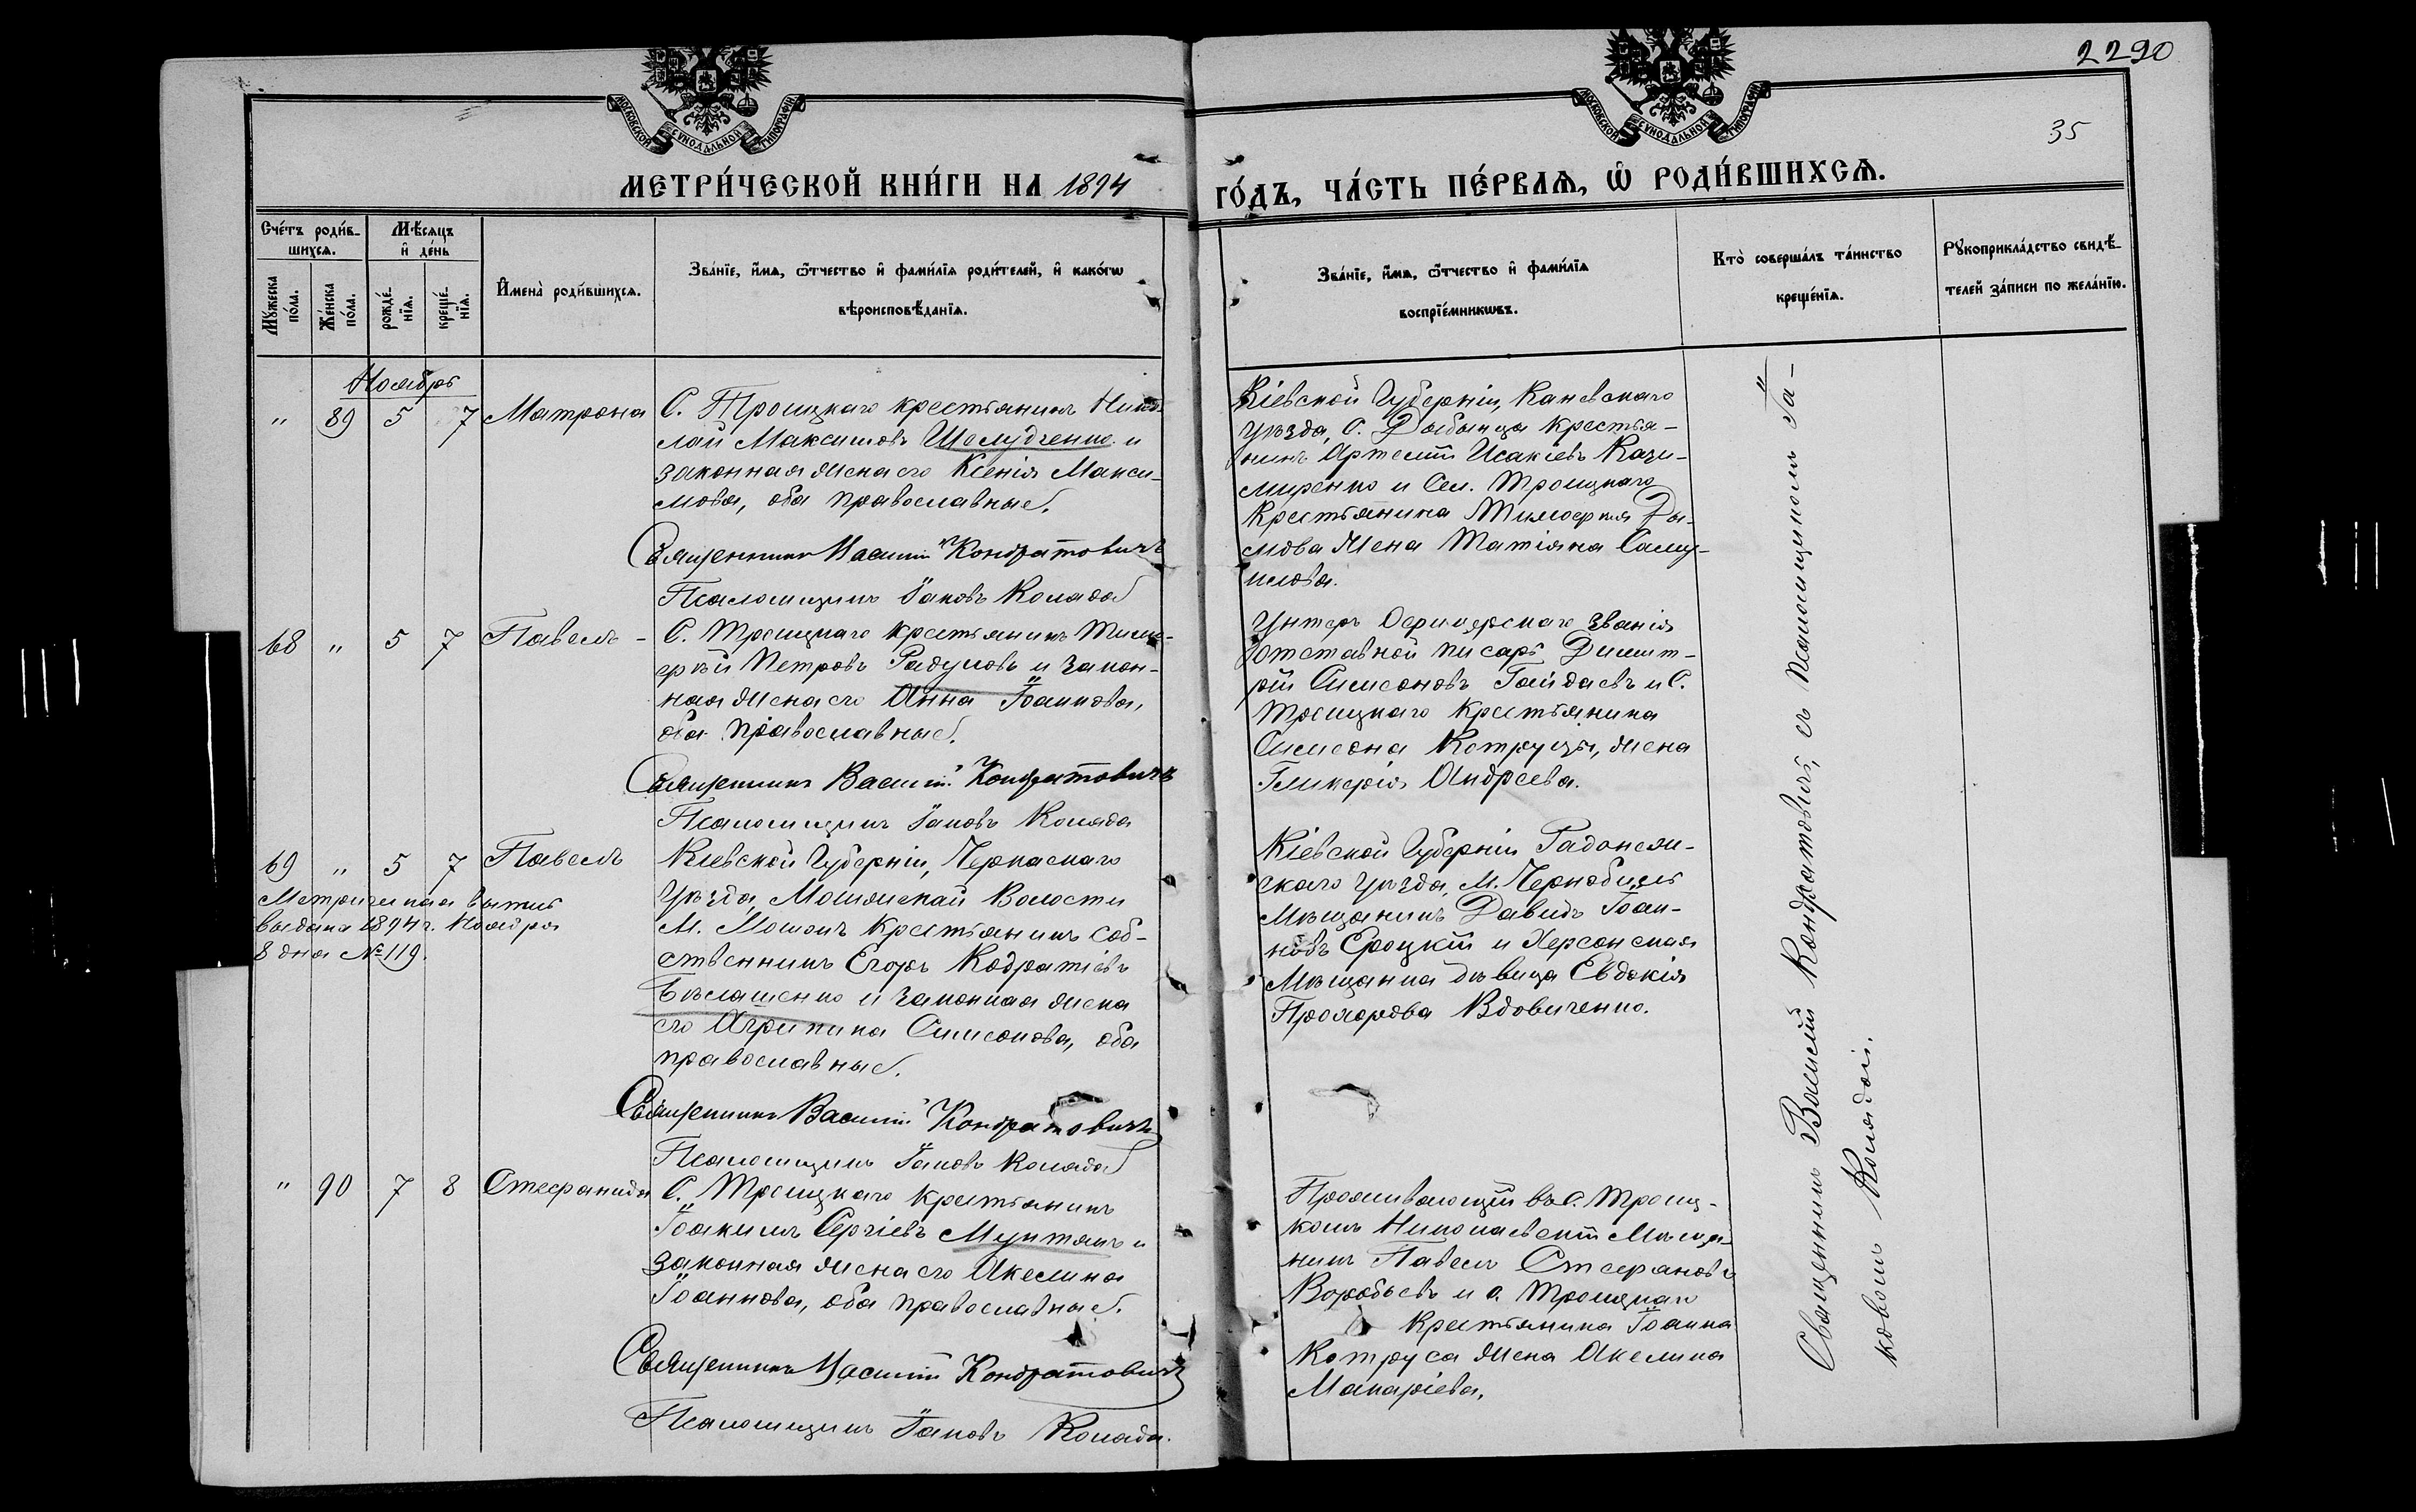 2290
35
МОСКОВСКОЙ СУНОДАЛЬНОЙ ТИПОГРАФІИ
МОСКОВСКОЙ СУНОДАЛЬНОЙ ТИПОГРАФІИ
МЕТРИ́ЧЕСКОЙ КНИ́ГИ НА 1894
ГО́ДЪ, ЧА́СТЬ ПЕ́РВАѦ, Ѽ РОДИ́ВШИХСѦ.
Сче́тъ роди́в-
шихсѧ.
Мꙋ́жеска
по́ла.
Же́нска
по́ла.
Мѣ́сѧцъ
и҆ де́нь
рожде́-
нїѧ.
креще́-
нїѧ.
И҆мена̀ роди́вшихсѧ.
Зва́нїе, и҆́мѧ, ѻ҆́тчество и҆ фами́лїѧ роди́телей, и҆ како́гѡ
вѣроисповѣ́данїѧ.
Зва́нїе, и҆́мѧ, ѻ҆́тчество и҆ фами́лїѧ
воспрїе́мникѡвъ.
Кто̀ соверша́лъ та́инство
креще́нїѧ.
Рꙋкоприкла́дство свидѣ́-
телей за́писи по жела́нїю.
Ноябрь
" 89 5 7 Матрона
С. Троицкаго крестьянинъ Нико-
лай Максимовъ Шелудченко и
законная жена его Ксенія Макси-
мова, оба православные.
Священникъ Василій Кондратовичъ
Псаломщикъ Іаковъ Коляда
Кіевской Губерніи, Каневскаго
уѣзда, С. Дыбынца крестья-
нинъ Артемій Исакіевъ Кази-
миренко и Сел. Троицкаго
крестьянина Тимофея Ды-
мова жена Татіана Саму-
илова.
68 " 5 7 Павелъ -
С. Троицкаго крестьянинъ Тимо-
фѣй Петровъ Радуловъ и закон-
ная жена его Анна Іоаннова,
оба православные.
Священникъ Василій Кондратовичъ
Псаломщикъ Іаковъ Коляда
Унтеръ Офицерскаго званія
отставной писарь Димит-
рій Симеоновъ Гайдаевъ и С.
Троицкаго крестьянина
Симеона Котруцы, жена
Гликерія Андреева.
69 " 5 7 Павелъ
Метрическая выпись
выдана 1894 г. Ноября
8 дня №119.
Кіевской Губерніи, Черкаскаго
Уѣзда, Мошянской Волости
М. Мошонъ крестьянинъ соб-
ственникъ Егоръ Кодратіевъ
Бѣслашенко и законная жена
его Агрипина Симеонова, оба
православные.
Священникъ Василій Кондратовичъ
Псаломщикъ Іаковъ Коляда
Кіевской Губерніи Радомсли-
скаго уѣзда, М. Чернобыль
Мѣщанинъ Давидъ Іоан-
новъ Ероцкій и Херсонская
Мѣщанка дѣвица Евдокія
Прохорова Вдовиченко.
" 90 7 8 Стефанида
С. Троицкаго крестьянинъ
Іоакимъ Сергіевъ Мунтянъ и
законная жена его Акелина
Іоаннова, оба православные.
Священникъ Василій Кондратовичъ
Псаломщикъ Іаковъ Коляда.
Проживающій въ с. Троиц-
комъ Николаевскій Мѣща-
нинъ Павелъ Стефановъ
Воробьевъ и с. Троицкаго
крестьянина Іоанна
Котруса жена Акелина
Макаріева.
Священникъ Василій Кондратовичъ, съ псаломщикомъ Іа-
ковомъ Колядой.